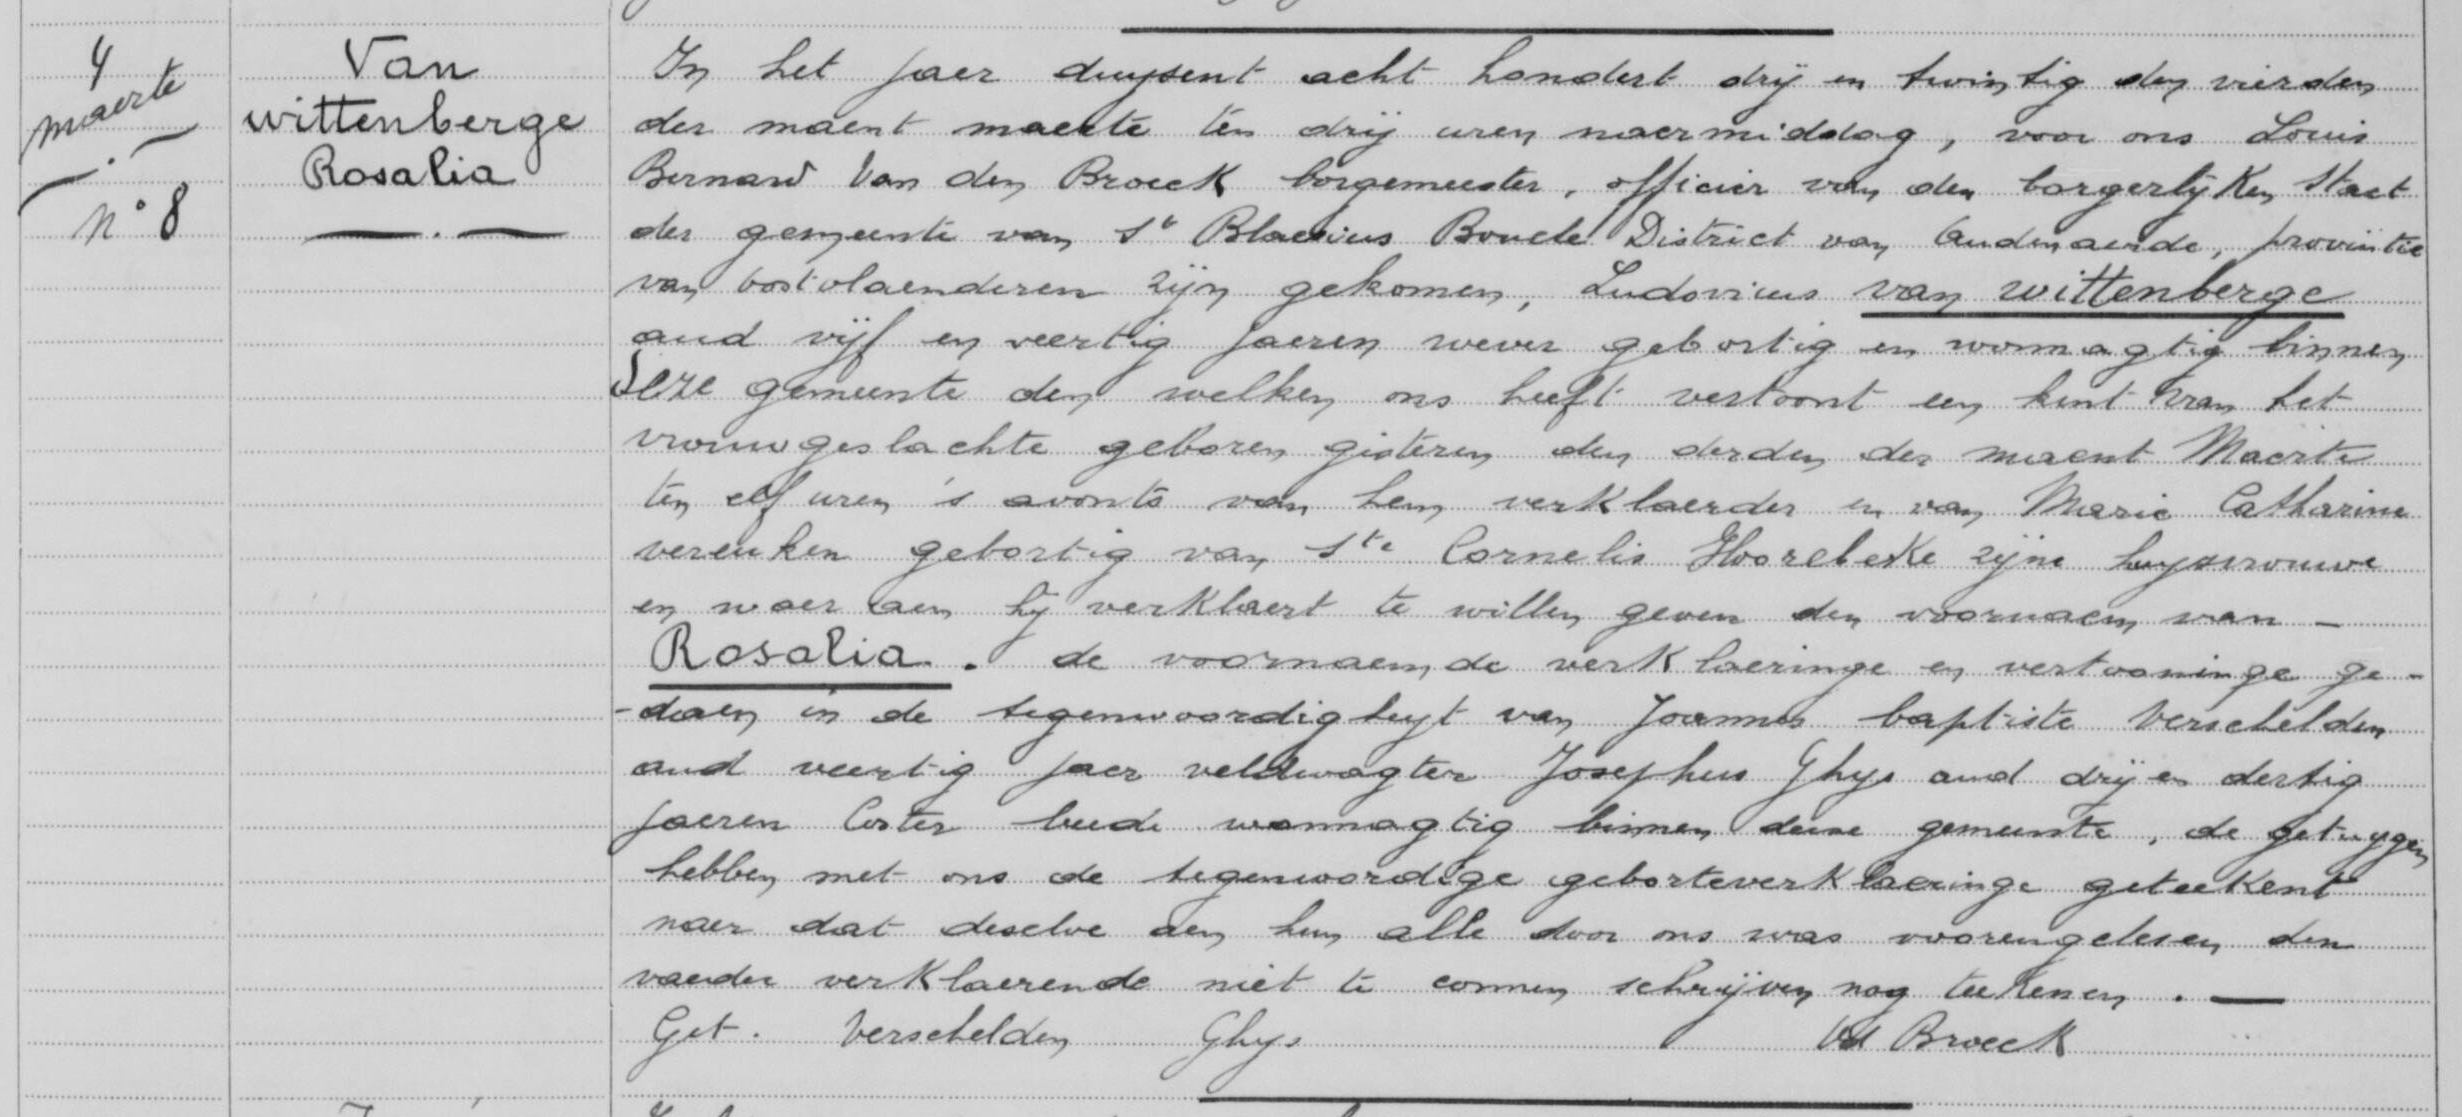 4
maerte
N° 8
Van
wittenberge
Rosalia
In het jaer duysent acht hondert drÿ en twintig den vierden
der maent maerte ten drÿ uren naermiddag, voor ons Louis
Bernard Van den Broeck borgemeester, officier van den borgerlÿken staet
der gemeente van St Blaesius Boucle District van Audenaerde, provintie
van oostvlaenderen zÿn gekomen, Ludovicus van wittenberge
aud vÿf en veertig jaeren wever gebortig en woonagtig binnen
deze gemeente den welken ons heeft vertoont een kint van het
vrouwgeslachte geboren gisteren den derden der maent Maerte
ten elf uren 's avonts van hem verklaerder en van Marie Catharine
vereuken gebortig van Ste Cornelis Hoorebeke zÿne huysvrouwe
en waer aen hÿ verklaert te willen geven den voornaem van -
Rosalia. de voornaemde verklaeringe en vertooninge ge-
-daen in de tegenwoordigheyt van Joannes baptiste Verschelden
aud veertig jaer veldwagter Josephus Ghys aud drÿ en dertig
jaeren Coster beede woonnagtig binnen dese gemeente, de getuygen
hebben met ons de tegenwordige geborteverklaeringe geteekent
naer dat deselve aen hun alle door ons was voorengelesen den
vaeder verklaerende niet te connen schrÿven nog teekenen. —
Get. Verschelden Ghys Vd Broeck